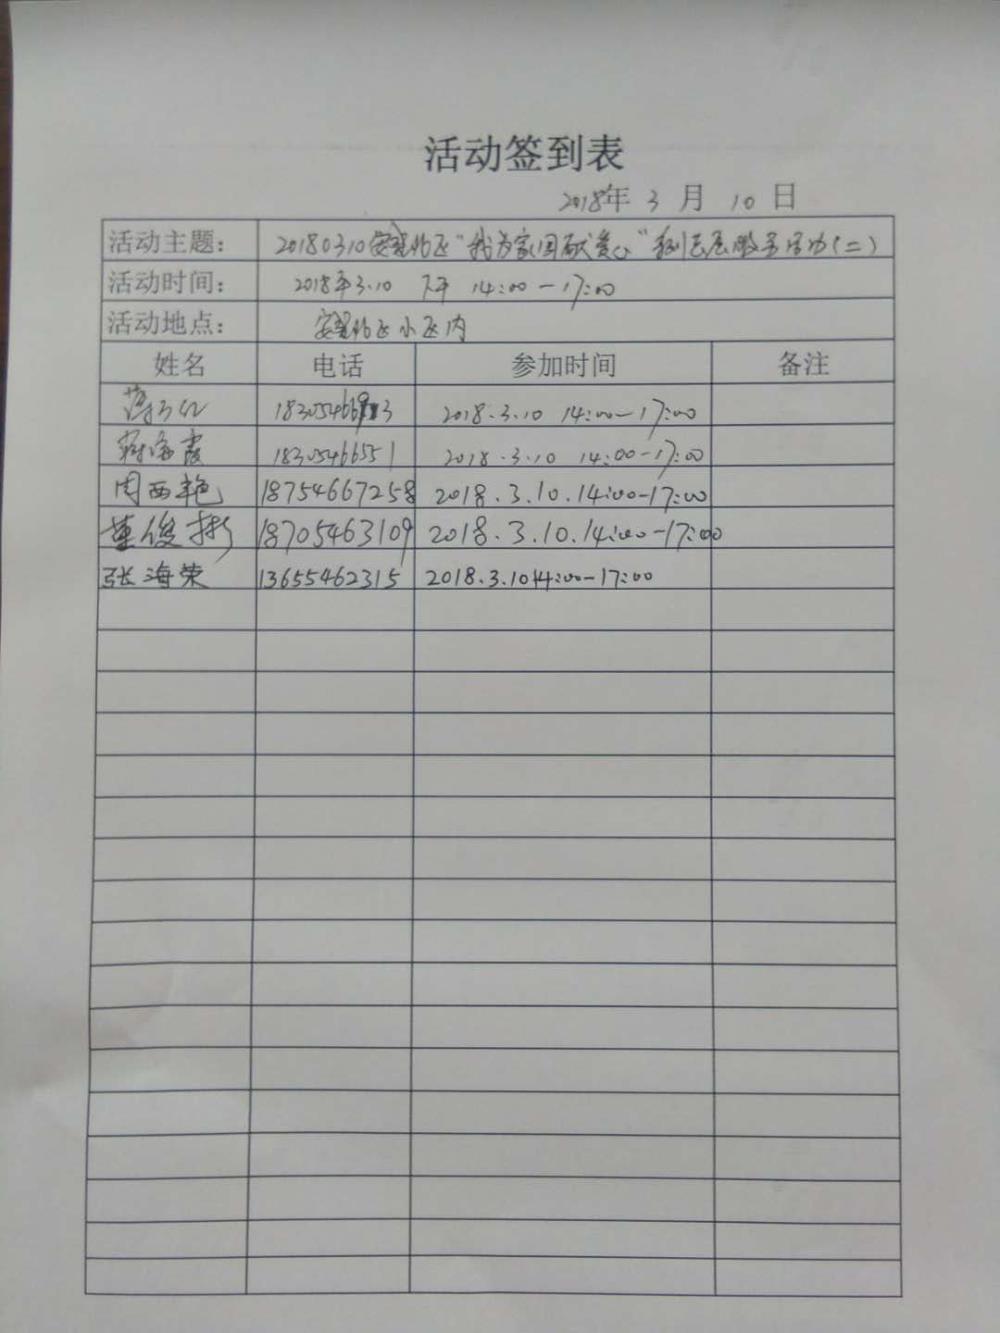 活动签到表
2018年 3 月 10 日
活动主题： 20180310安慧社区“我为家园献爱心”系列志愿服务活动(二)
活动时间： 2018年3.10 下午 14:00—17:00
活动地点： 社区小区内
姓名 电话 参加时间 备注
2018.3.10 14:00—17:00
海霞 18305466551 2018.3.10 14:00-17:00
周西艳 18754667258 2018.3.10.14:00-17:00
董俊彬 18705463109 2018.3.10.14:00-17:00
张海荣 13655462315 2018.3.10 14:00-17:00